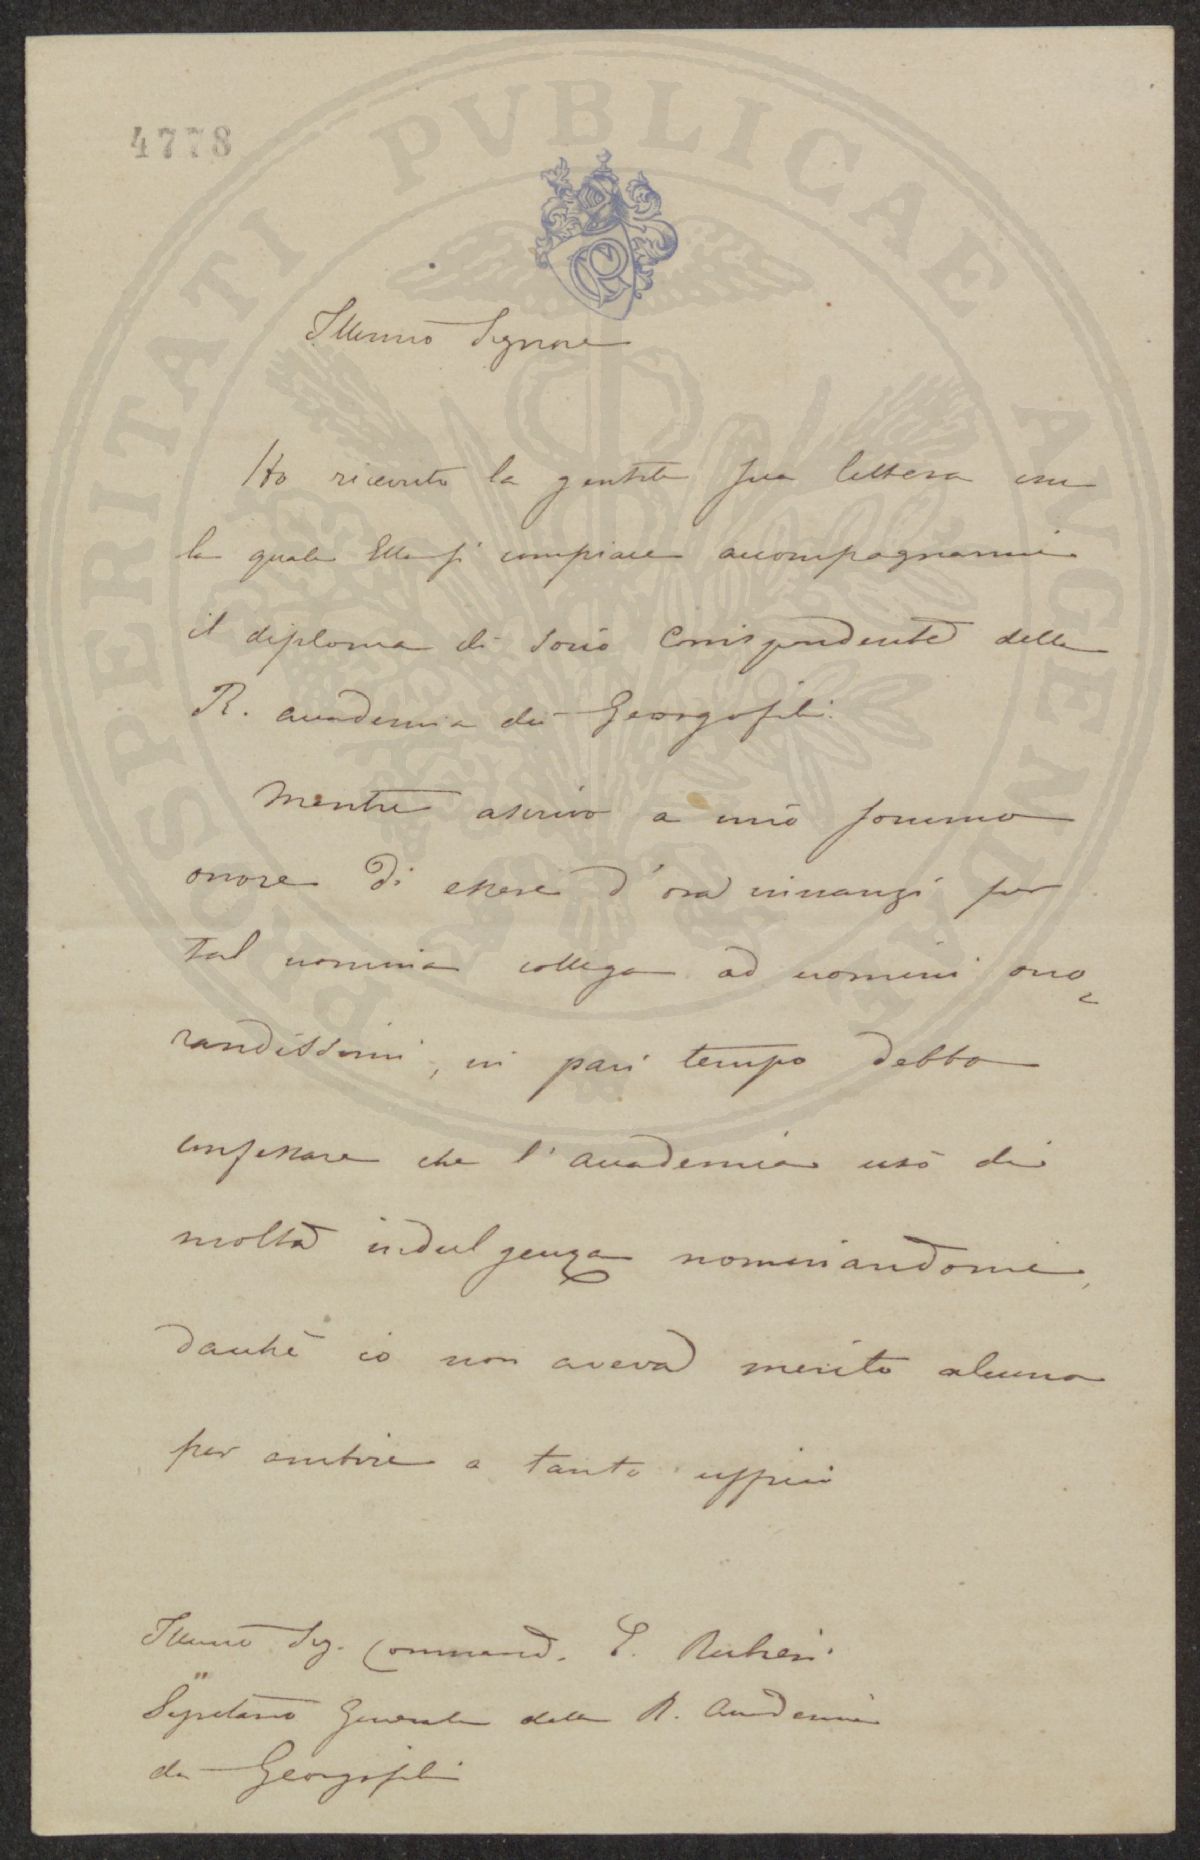 4778
PROSPERITATI PVBLICAE AVGENDAE
Illmo Signore
Ho ricevuto la gentile sua lettera con
la quale Ella si compiace accompagnarmi
il diploma di Socio Corrispondente della
R. accademia dei Georgofili.
Mentre ascrivo a mio sommo
onore di essere d'ora innanzi per
tal nomina collega ad uomini ono=
randissimi, in pari tempo debbo
confessare che l'accademia usò di
molta indulgenza nominandomi,
dacchè io non aveva merito alcuno
per ambire a tanto ufficio
Illmo Sig. Command. P.
Segretario Generale della R. Accademia
dei Georgofili